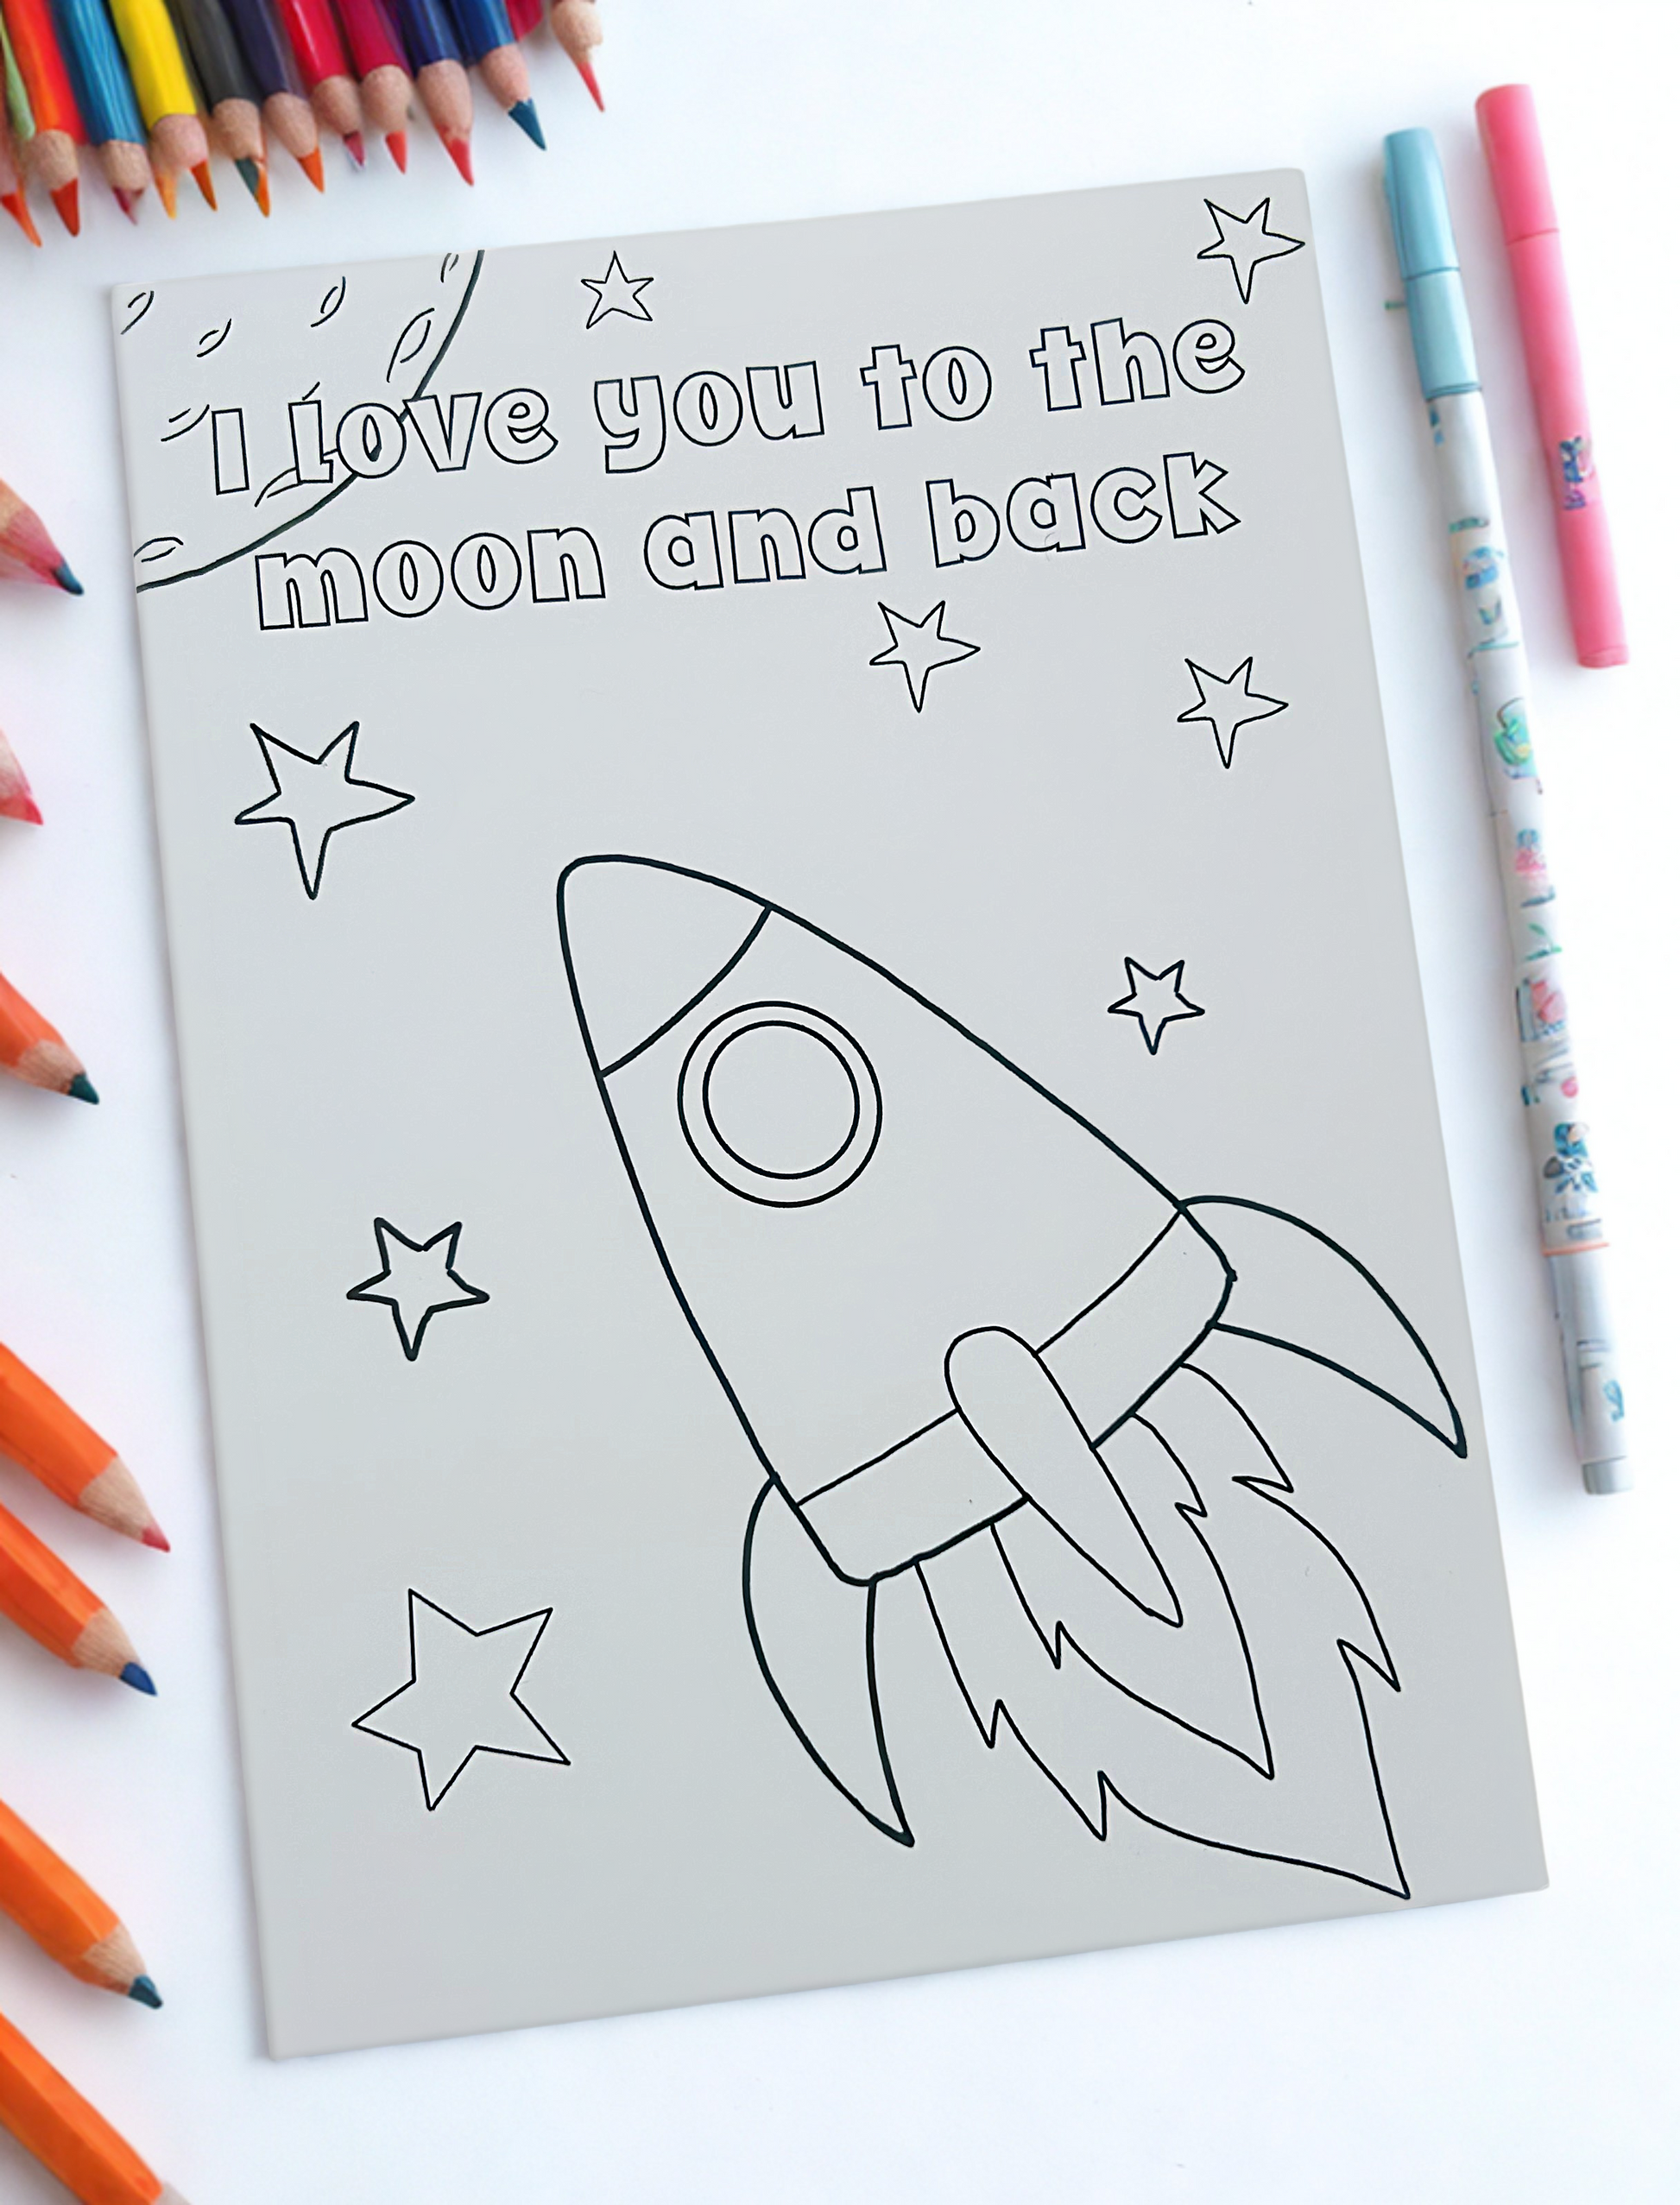 I love you to the
moon and back